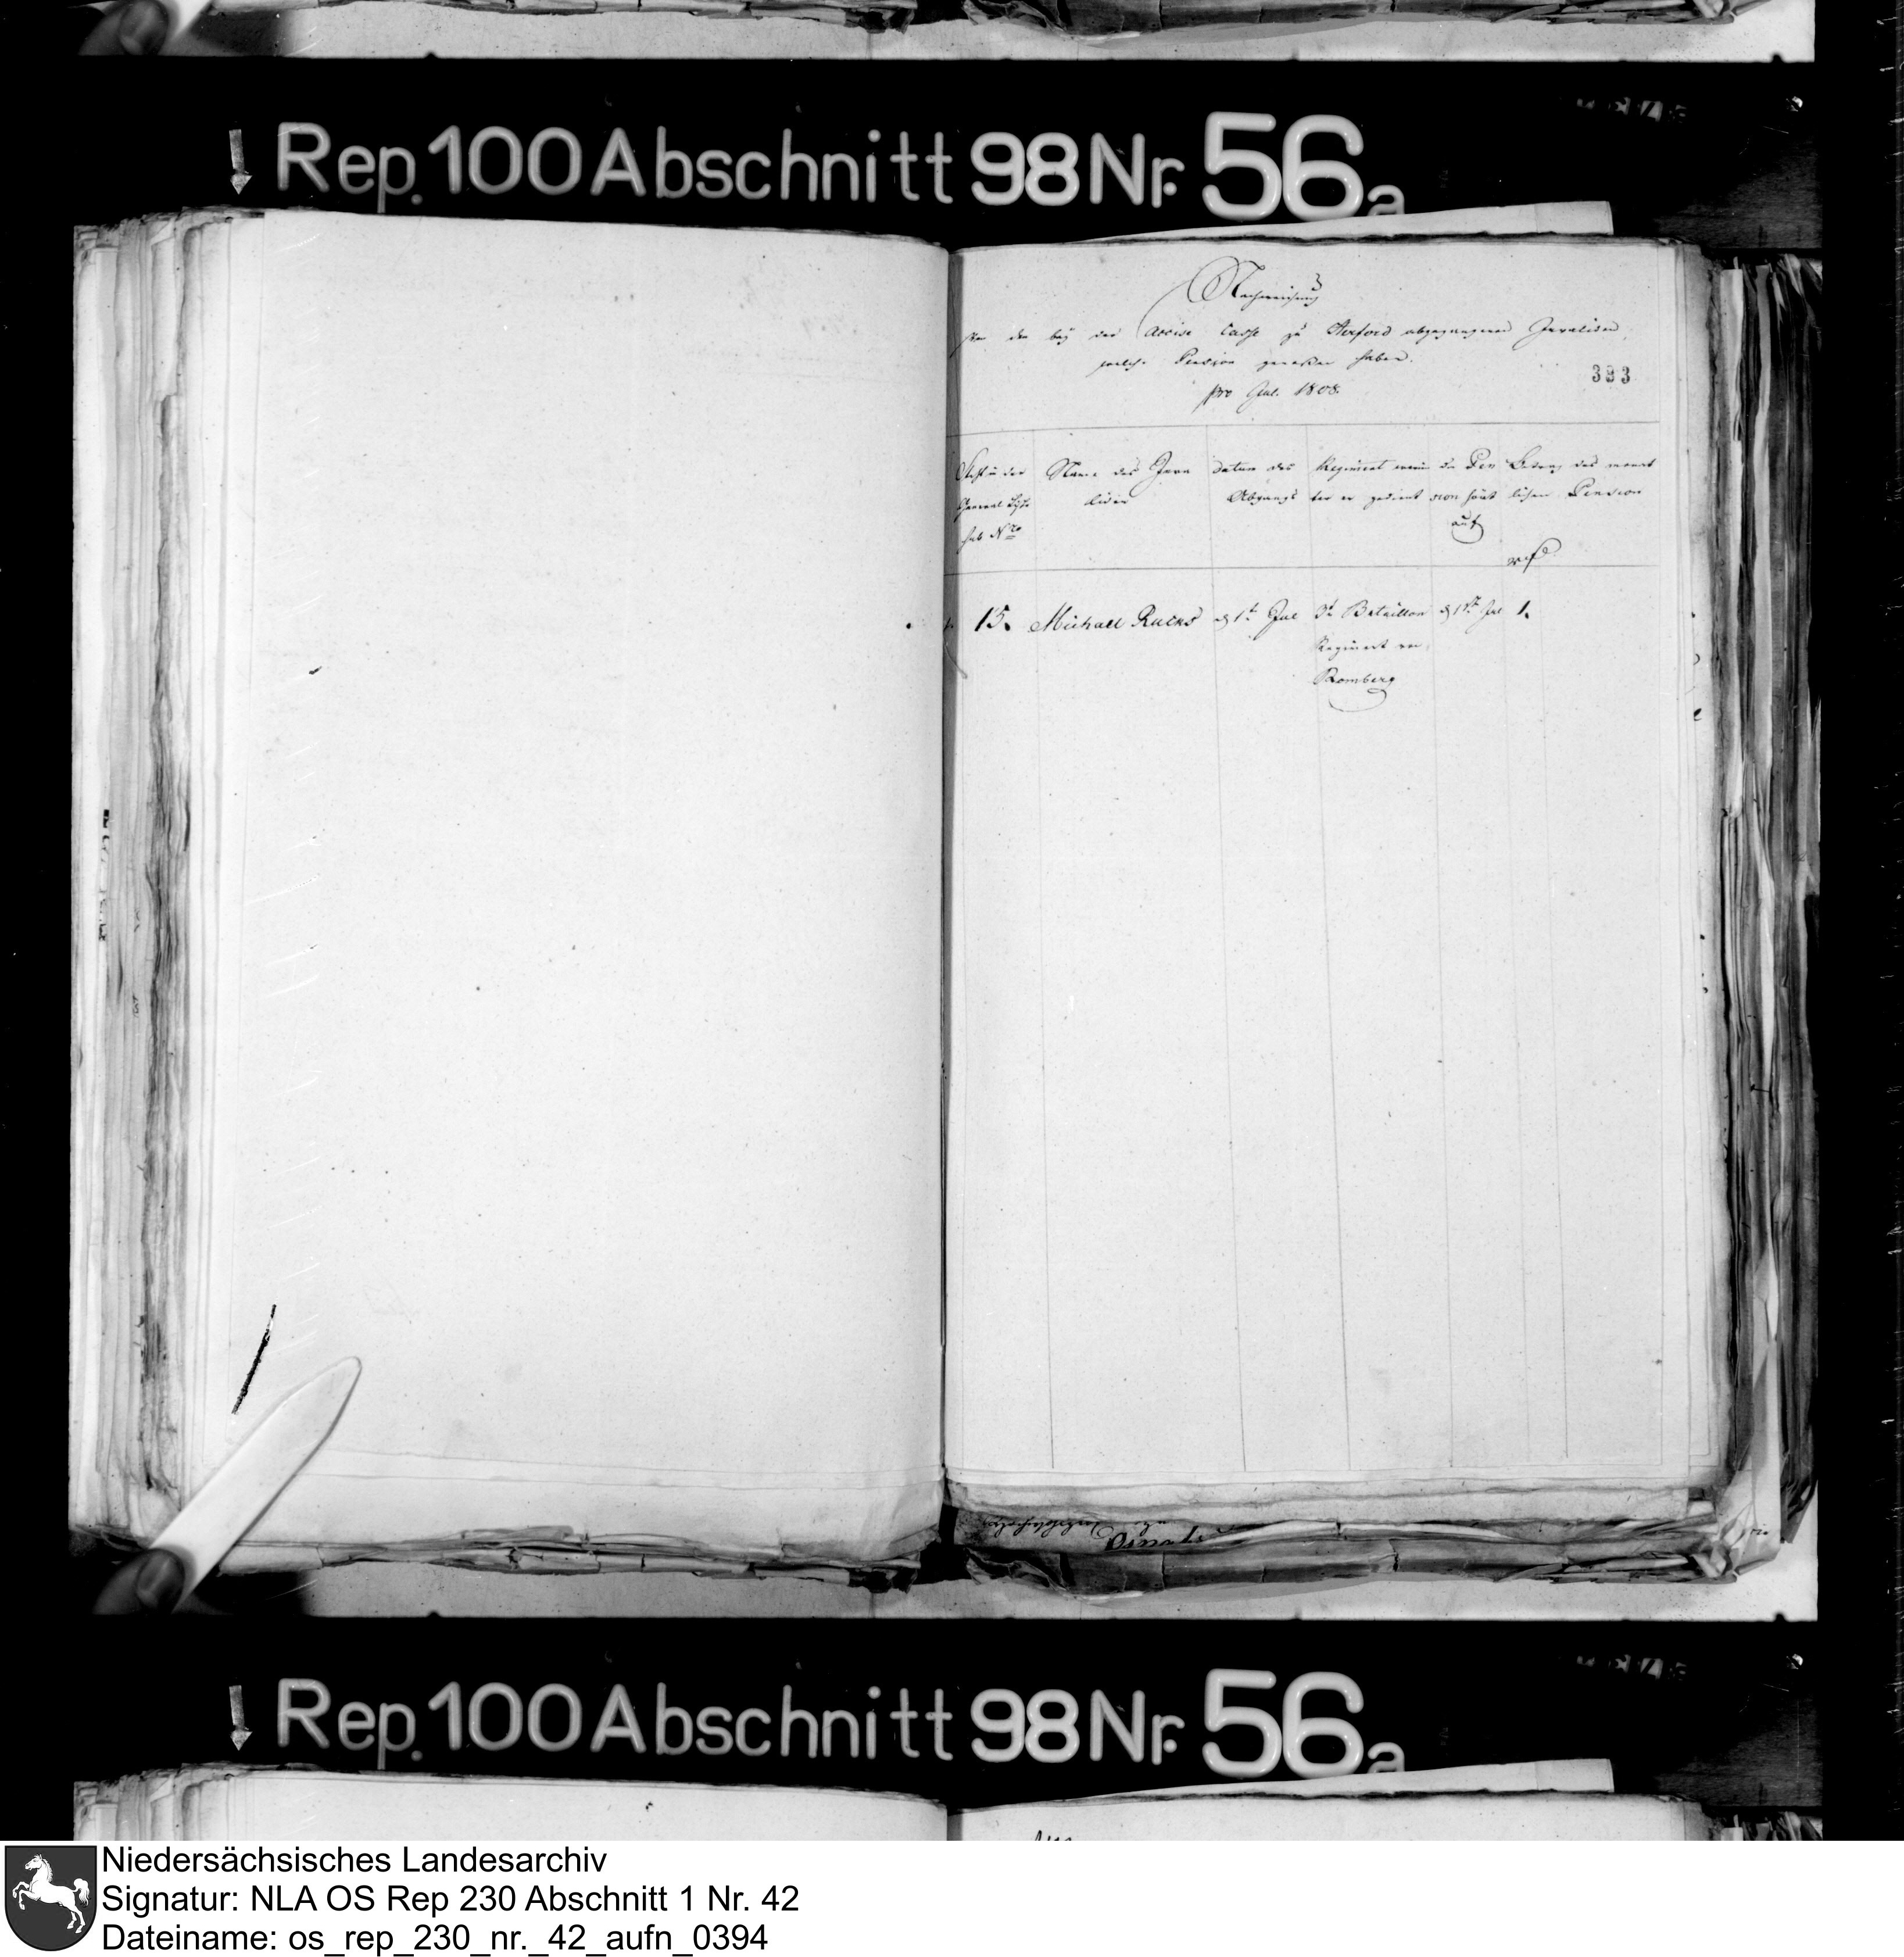 Rep. 100 Abschnitt 98 Nr. 56a
Nachweisung
von den bey der Accise Casse zu Herford abgegangenen Invaliden,
welche Pension genoßen haben.
pro Jul. 1808.
393
Steht in der
General Liste
sub Nro
Name des Inva
liden
Datum des
Abgangs
Regiment worin
er gedient
die Pen
sion hört
auf
Betrag der monat
lichen Pension
15. Michael Ruens d 1t Jul 3t Bataillon d 1t Jul 1.
Regiment von
Romberg
Rep. 100 Abschnitt 98 Nr. 56a
Niedersächsisches Landesarchiv
Signatur: NLA OS Rep 230 Abschnitt 1 Nr. 42
Dateiname: os_rep_230_nr._42_aufn_0394